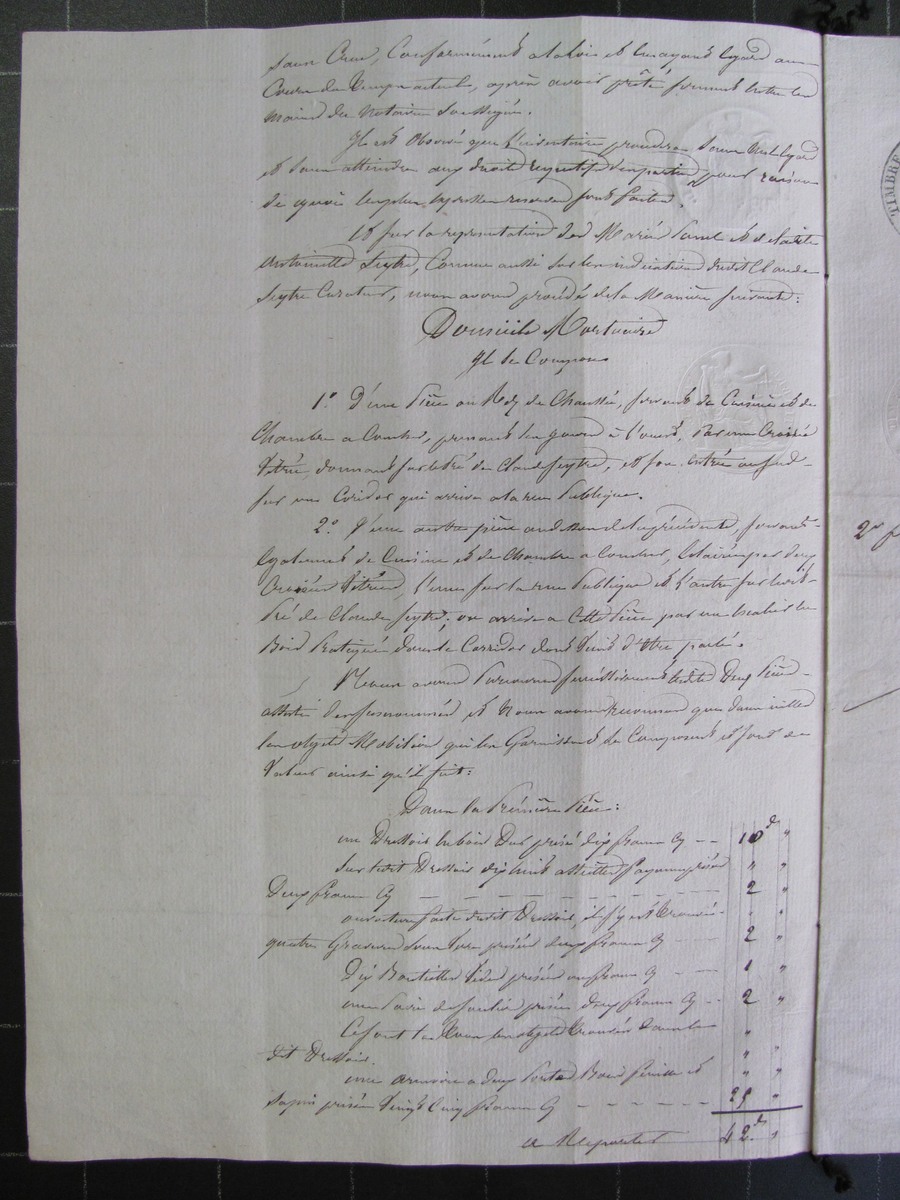 sans Crue, Conformément a la loi et En ayant Egard au
Cours du temps actuel, après avoir prêté serment entre les
mains du Notaire Soussigné.
Il est Observé que l'inventaire procédera sans Préjudice
et sans attendre aux droits respectifs des parties, pour raison
de quoi les plus Expresses reserves sont faites.
Et sur la représentation des Mariés et de ladite
Antoinette Seytre, Comme aussi sur les indications dudit Claude
Seytre Curateur, nous avons procédé de la Manière suivante :
Domicile Mortuaire
Il se Compose
1.° D'une Pièce au Rez de Chaussée, servant de Cuisine et de
Chambre a Coucher, prenant ses jours à l'ouest, Par une Croisée
Vitrée, donnant sur le Pré de Claude Seytre, et son entrée au sud
sur un Coridor qui arrive a la rue Publique.
2.° D'une autre pièce au dessus de la précédente, servant
Egalement de Cuisine et de Chambre a Coucher, Eclairée par deux
Croisées Vitrées, l'une sur la rue Publique et l'autre sur ledit
Pré de Claude Seytre ; on arrive a Cette Pièce par un Escalier En
Bois Pratiqué dans le Corridor dont Vient d'Etre parlé.
Nous avons Parcouru successivement lesdites Deux Pièces
et Nous avons reconnu que dans icelles
les objets Mobiliers qui les Garnissent se Composent et sont de
Valeur ainsi qu'il suit :
Dans la Première Pièce :
un Dressoir En bois Dur prisé dix francs Cy -- 10 f "
Sur ledit Dressoir dix huit assiettes fayance prisées " "
Deux francs Cy -- 2 "
ouverture faite dudit Dressoir, il s'y est trouvé " "
quatre prisées deux francs Cy -- 2 "
Dix Bouteilles Vides prisées un franc Cy -- 1 "
une Paire de souliers prisée deux francs Cy -- 2 "
Ce sont la tous les objets trouvés dans le "
dit Dressoir. " "
une armoire a deux Portes Bois Cerisier et " "
Sapin prisée Vingt Cinq francs Cy -- 25 "
a Reporter 42 f "
TIMBRE
2.e